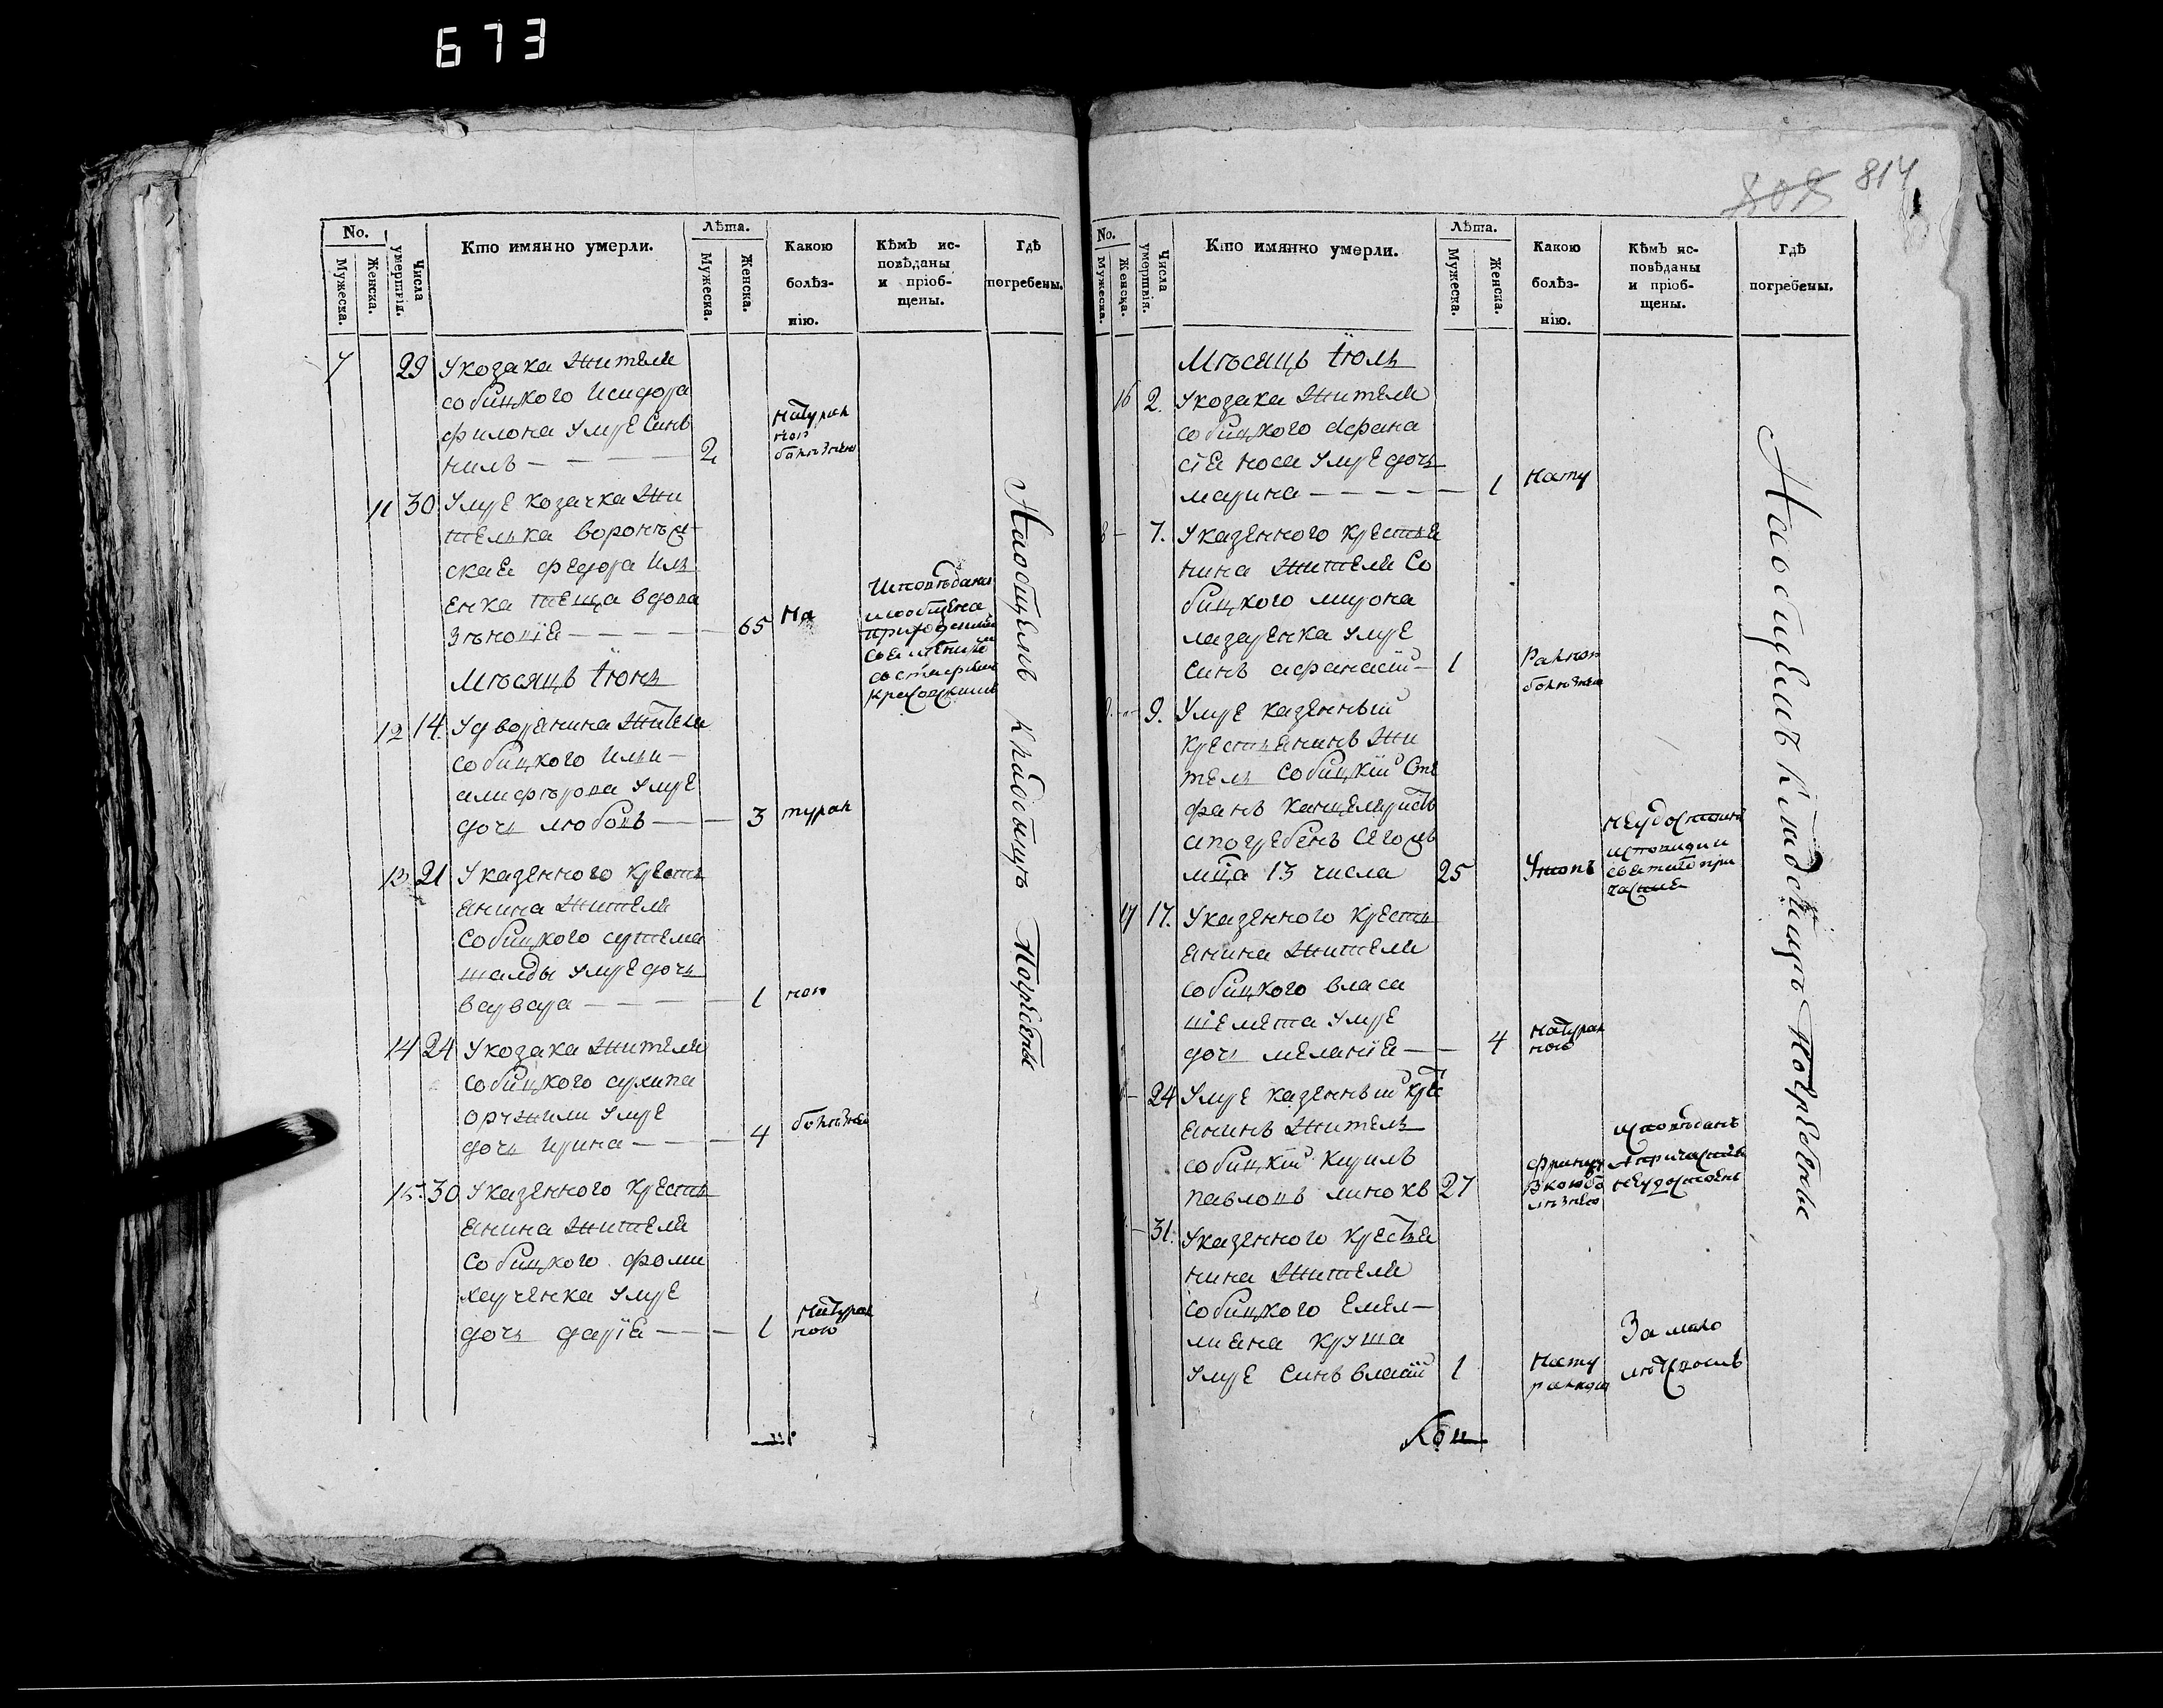 673
808 814
No. Лѣта.
Мужеска. Женска. Числа умертвія. Кто имянно умерли. Мужеска. Женска. Какою болѣз-нію. Кѣмъ ис-повѣданы и пріоб-щены. Гдѣ погребены.
7 29 У козака жителя
собицкого Исидора
филона умре синъ
нилъ — 2 натурал
ною
болѣзнею
11 30 Умре козачка жи
телька воронѣж
ская федора Иля
енка теща вдова
зѣновія — 65 На
Исповѣдана
приходскимъ
священико
Мѣсяцъ Іюнь
12 14. У дворянина жителя
собицкого Ильи
алиферова умре
дочь любовъ — 3 турал
13 21 У казенного крестя
янина жителя
Собицкого артема
шалды умре дочь
варвара — 1 ною
14 24 У козака жителя
собицкого архипа
умре
дочь ирина — 4 болѣзнею
15 30 У казенного крестя
янина жителя
Собицкого фоми
харченка умре
дочь дарія — 1 натурал
ною
На общемъ кладбищѣ Погребены
No. Лѣта.
Мужеска. Женска. Числа умертвія. Кто имянно умерли. Мужеска. Женска. Какою болѣз-нію. Кѣмъ ис-повѣданы и пріоб-щены. Гдѣ погребены.
Мѣсяцъ Іюль
16 2. У козака жителя
собицкого Афана
сія носа умре дочь
марина — 1 Нату
8 — 7. У казенного крестья
нина жителя Со
бицкого мирона
лазаренка умре
синъ афанасій — 1 ралною
болѣзнею
9. Умре казенный
крестьянинъ жи
тель Собицкій Сте
фанъ
а погребенъ сего жъ
мца 13 числа 25 Утопъ
неудостоенъ
исповиди и
святаго при
частія
17 17. У казенного крестя
янина жителя
собицкого власа
шемета умре
дочь меланія — 4 натурал
ною
24 Умре казенный крест
янинъ житель
собицкій кирилъ
павловъ линокъ 27
исповѣданъ
а причастія
неудостоенъ
— 31. У казенного крестья
нина жителя
собицкого Емел—
мяна круша
умре синъ власій 1 Нату
ралною
За мало
лѣтствомъ
Кон
На общемъ кладбищѣ Погребены